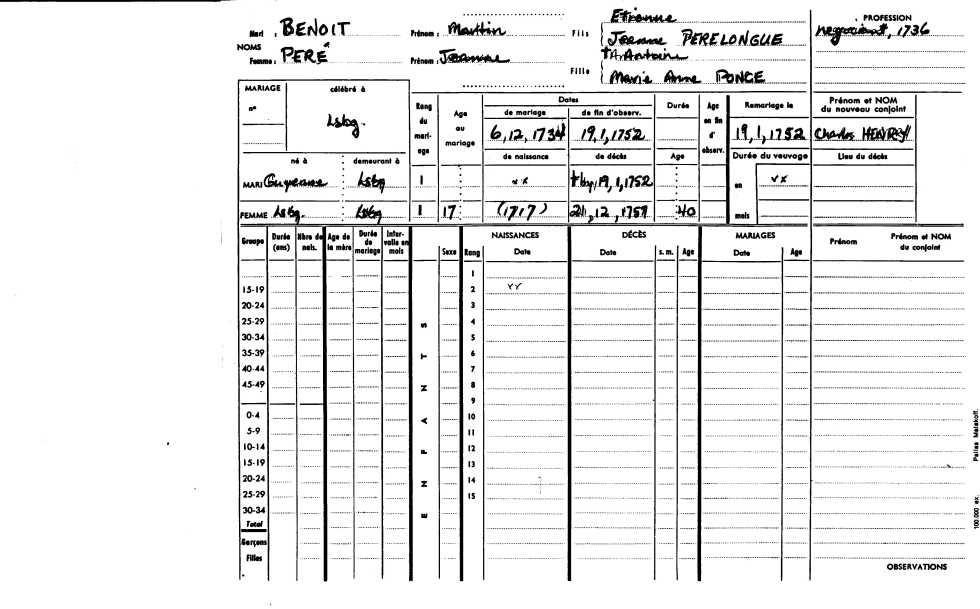 Mari : BENOIT Prénom : Martin Fils Etienne
Jeanne PERELONGUE
PROFESSION
negociant, 1736
NOMS
Femme : PERÉ Prénom : Jeanne Fille † A. Antoine
Marie Anne PONCE
MARIAGE célébré à
n° Lsbg.
Rang du mari-age
Age au mariage
Dates
de mariage de fin d'observ.
6, 12, 1734 19, 1, 1752
Durée
Age en fin d' observ.
Remariage le
19, 1, 1752
Prénom et NOM du nouveau conjoint
Charles HENREY
né à demeurant à
de naissance de décès Age
Durée du veuvage
Lieu du décès
MARI Guyenne Lsbg 1 xx † bef 19, 1, 1752
en xx
FEMME Lsbg. Lsbg 1 17 (1717) 21, 12, 1757 40
mois
Groupe Durée (ans) Nbre de nais. Age de la mère Durée de mariage Inter-valle en mois
ENFANTS
Sexe Rang
NAISSANCES
Date
DÉCÈS
Date s. m. Age
MARIAGES
Date Age
Prénom Prénom et NOM du conjoint
1
15-19 2 xx
20-24 3
25-29 4
30-34 5
35-39 6
40-44 7
45-49 8
9
0-4 10
5-9 11
10-14 12
15-19 13
20-24 14
25-29 15
30-34
Total
Garçons
Filles
OBSERVATIONS
100.000 ex. Pallas Malakoff.